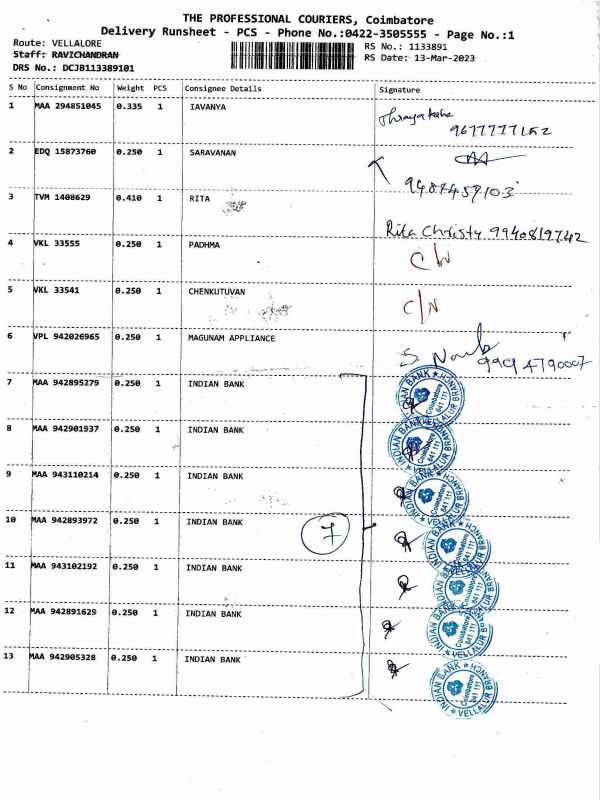 THE PROFESSIONAL COURIERS, Coimbatore
Delivery Runsheet - PCS - Phone No.:0422-3505555 - Page No.:1
Route: VELLALORE
RS No.: 1133891
Staff: RAVICHANDRAN
RS Date: 13-Mar-2023
DRS No.: DCJB113389101
S No Consignment No Weight PCS Consignee Details Signature
1 MAA 294851045 0.335 1 IAVANYA
2 EDQ 15873760 0.250 1 SARAVANAN
9487459103
3 TVM 1408629 0.410 1 RITA
Rita Christy 9940819742
4 VKL 33555 0.250 1 PADHMA
5 VKL 33541 0.250 1 CHENKUTUVAN
C/N
6 VPL 942026965 0.250 1 MAGUNAM APPLIANCE
7 MAA 942895279 0.250 1 INDIAN BANK
8 MAA 942901937 0.250 1 INDIAN BANK
9 MAA 943110214 0.250 1 INDIAN BANK
INDIAN BANK Coimbatore 641 111 VELLALUR BRANCH
10 MAA 942893972 0.250 1 INDIAN BANK 7
INDIAN BANK Coimbatore 641 111 VELLALUR BRANCH
11 MAA 943102192 0.250 1 INDIAN BANK
INDIAN BANK Coimbatore 641 111 VELLALUR BRANCH
12 MAA 942891629 0.250 1 INDIAN BANK
INDIAN BANK Coimbatore 641 111 VELLALUR BRANCH
13 MAA 942905328 0.250 1 INDIAN BANK
INDIAN BANK Coimbatore 641 111 VELLALUR BRANCH